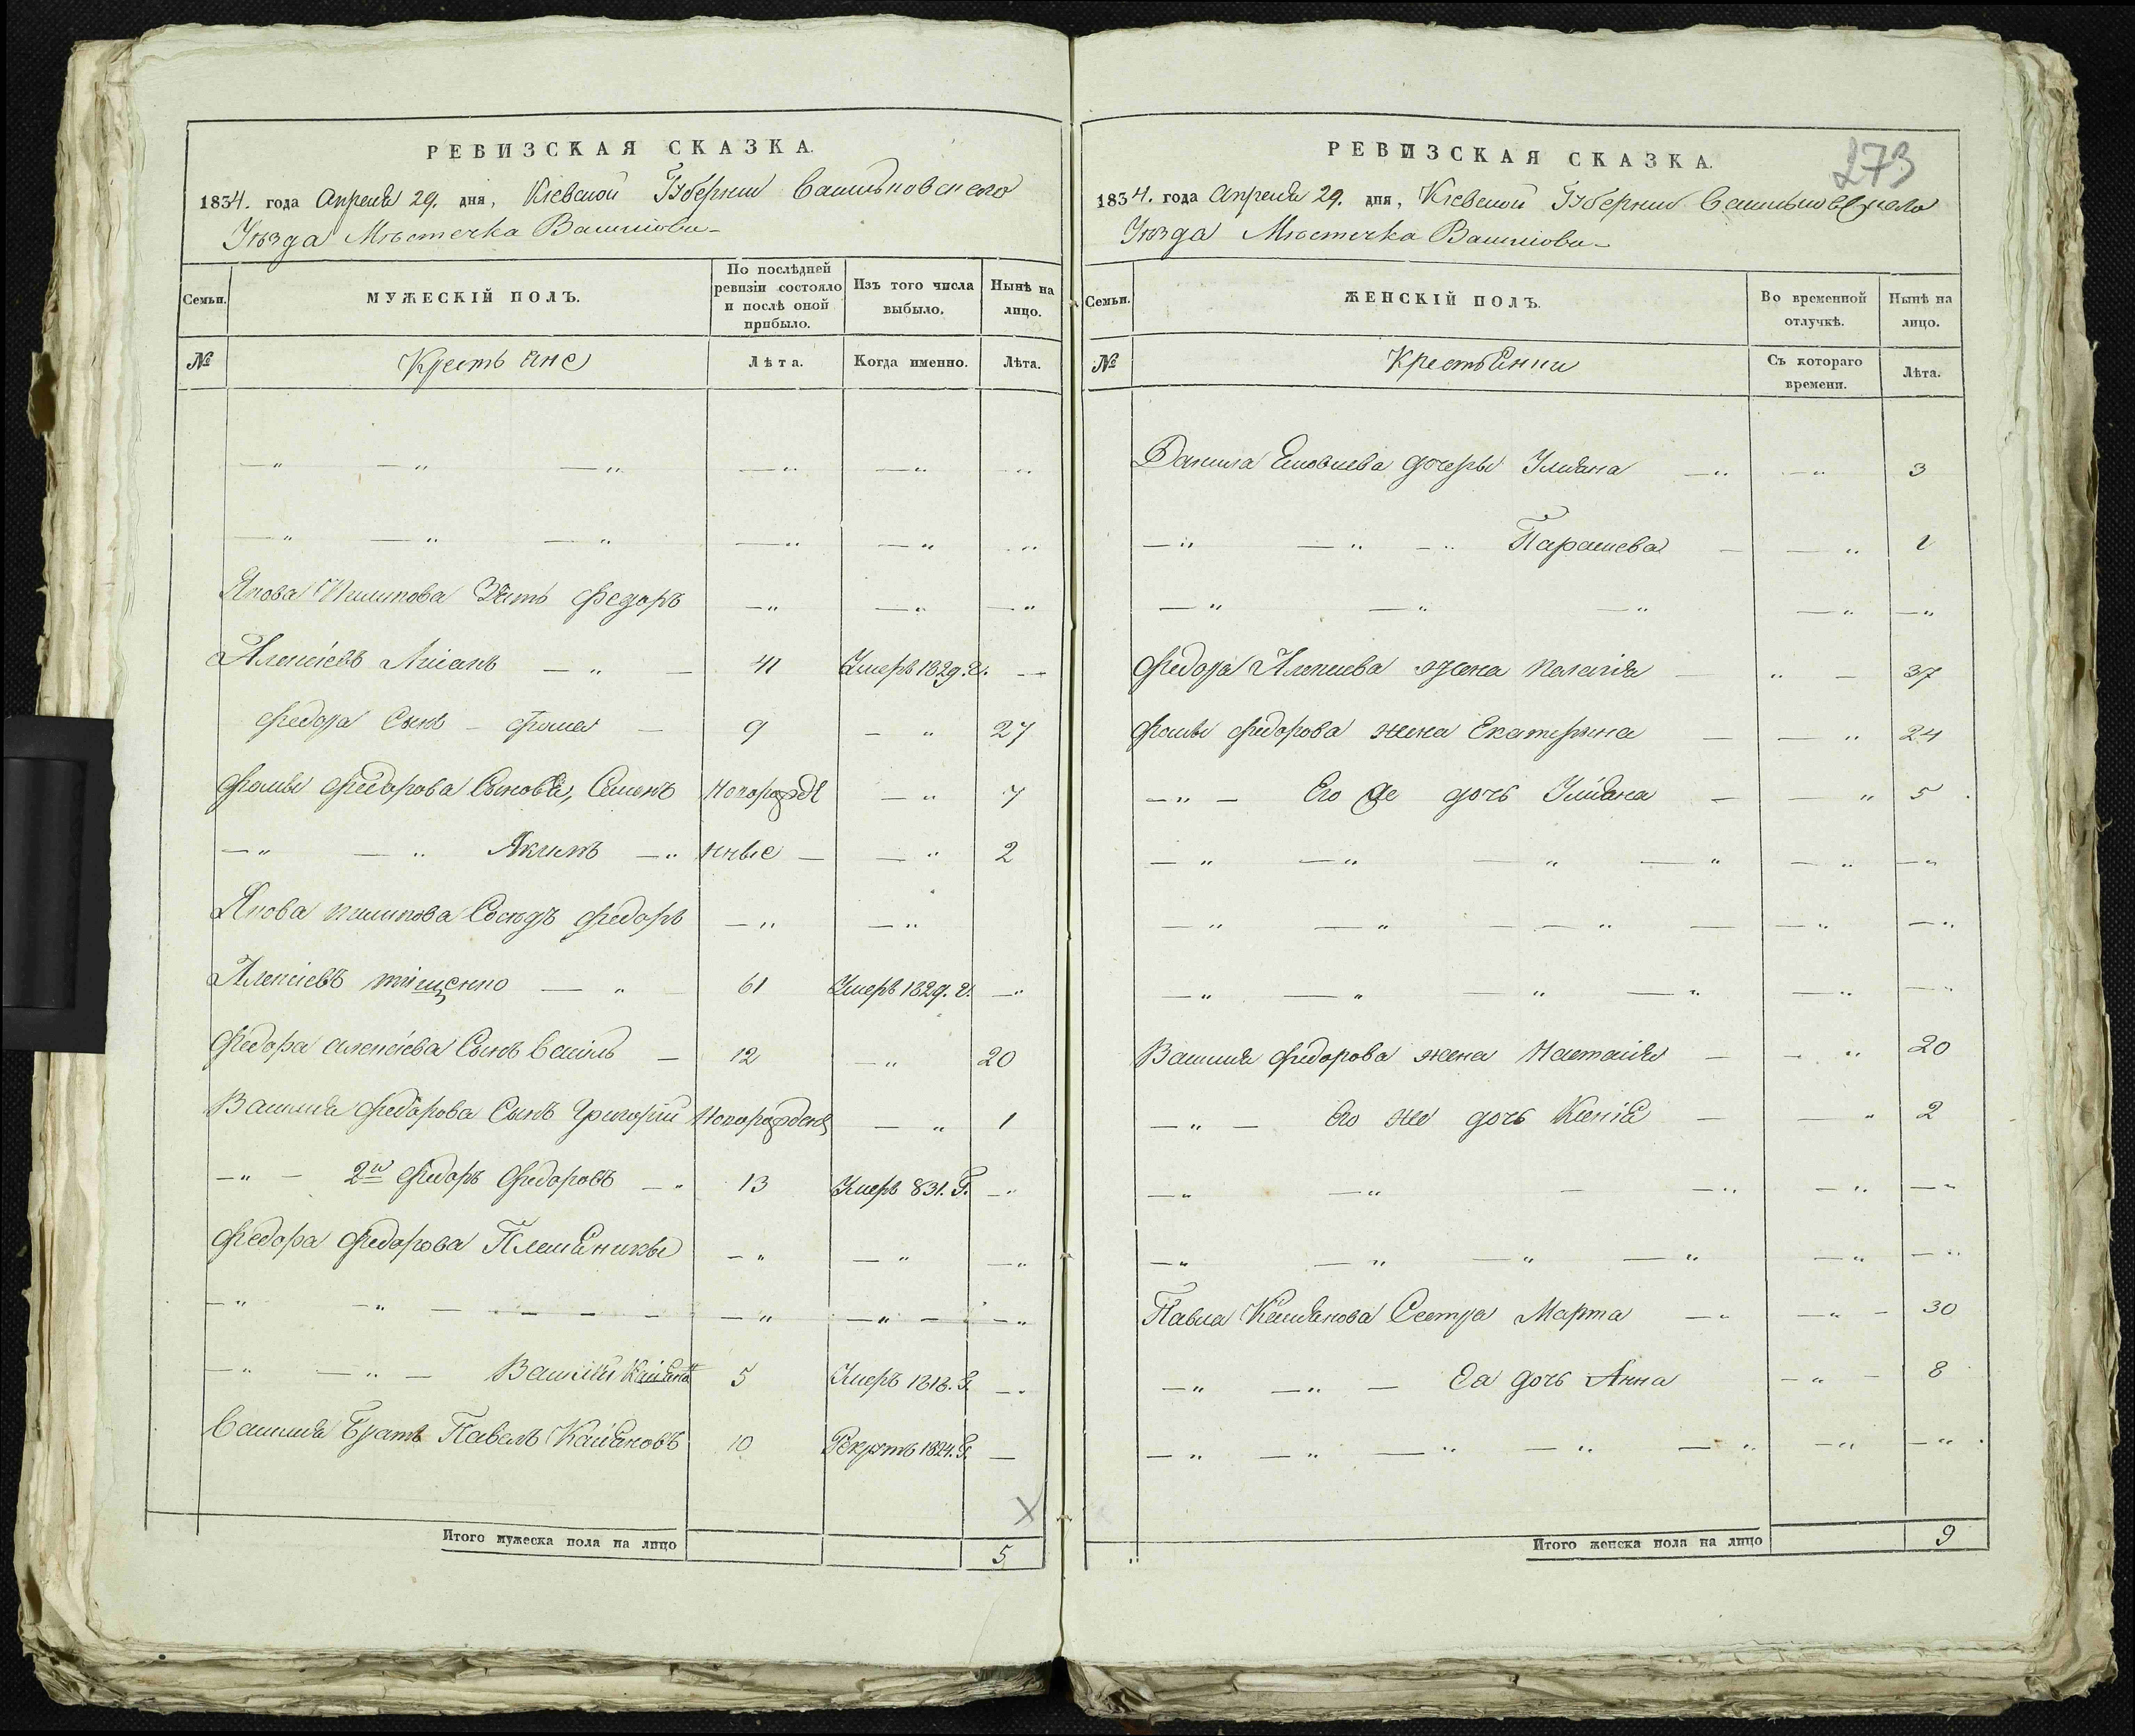 РЕВИЗСКАЯ СКАЗКА.
1834. года Апреля 29. дня, Кіевской Губерніи Васильковскаго
Уѣзда Мѣстечка Василкова
Семьи.
МУЖЕСКІЙ ПОЛЪ.
По послѣдней ревизіи состояло и послѣ оной прибыло.
Изъ того числа выбыло.
Нынѣ на лицо.
№
Крестьяне
Лѣта.
Когда именно.
Лѣта.
Якова Пилипова Зять Федоръ
Алексіевъ 41 Умеръ 1829. г.
Федора Сынъ Фома 9 27
Фомы Федорова Сыновья, Семенъ Новорожде 7
Якимъ нные 2
Якова Пилипова Сосѣдъ Федоръ
Алексіевъ тищенко 61 Умеръ 1829. г.
Федора алексіева Сынъ Василь 12 20
Василя Федорова Сынъ Григорій Новорожден 1
2й Федоръ Федоровъ 13 Умеръ 831. Г.
Федора Федорова Племяники
Василій 5 Умеръ 1818. Г.
Василя Братъ Павелъ Касяновъ 10 Рекрутъ 1824. Г.
Итого мужеска пола на лицо 5
273
РЕВИЗСКАЯ СКАЗКА.
1834. года Апреля 29. дня, Кіевской Губерніи Васильковскаго
Уѣзда Мѣстечка Василкова
Семьи.
ЖЕНСКІЙ ПОЛЪ.
Во временной отлучкѣ.
Нынѣ на лицо.
№
Крестьянки
Съ котораго времени.
Лѣта.
Данила дочеры Уліяна 3
Параскева 1
Федора Алексіева жена Палагія 37
Фомы Федорова жена Екатерина 24
Его же дочь Уліяна 5
Василя Федорова жена Настасія 20
Его же дочь Ксенія 2
Павла Касянова Сестра Марта 30
Еа дочь Анна 8
Итого женска пола на лицо 9